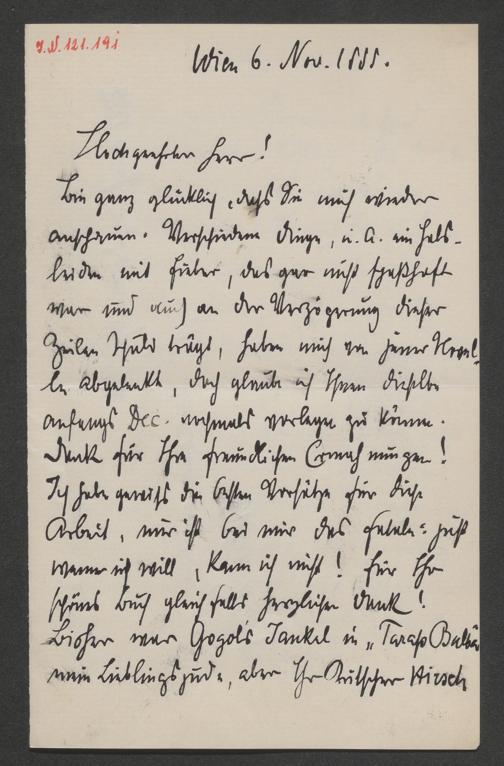 I.N. 121.191
Wien 6. Nov. 1888.
Hochgeehrter Herr!
Bin ganz glücklich, daß Sie mich wieder
anschauen. Verschiedene Dinge, u. a. ein Hals-
leiden mit Fieber, das gar nicht spaßhaft
war und auch an der Verzögerung dieser
Zeilen Schuld trägt, haben mich von jener Novel-
le abgelenkt, doch glaube ich Ihnen dieselbe
anfangs Dec. nochmals vorlegen zu können.
Dank für Ihre freundlichen Ermahnungen!
Ich habe gewiß die besten Vorsätze für diese
Arbeit, nur ist bei mir das fatale: just
wenn ich will, kann ich nicht! Für Ihr
schönes Buch gleichfalls herzlichen Dank!
Bisher war Gogols Jankel in „Taraß Bulba
mein Lieblingsjude, aber Ihr Kutscher Hirsch